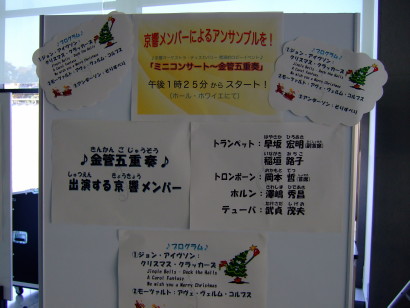 京響メンバーによるアンサンブルを!
「ミニコンサート〜金管五重奏」
午後1時25分からスタート!
(ホール・ホワイエにて)
プログラム♪
①ジョン・アイヴソン:
クリスマス・クラッカーズ
②モーツァルト・アヴェ・ヴェルム・コルプス
プログラム♪
①ジョン・アイヴソン:
クリスマス・クラッカーズ
②モーツァルト・アヴェ・ヴェルム・コルプス
きんかん ごじゅうそう
♪金管五重奏♪
しゅつえん きょうきょう
出演する京響メンバー
トランペット:早坂 宏明
稲垣 路子
トロンボーン:岡本 哲
ホルン:澤嶋 秀昌
テューバ:武貞 茂夫
♪プログラム♪
①ジョン・アイヴソン:
クリスマス・クラッカーズ
Jingle Bells - Deck the Halls
A Carol Fantasy
We wish you a Merry Christmas
②モーツァルト・アヴェ・ヴェルム・コルプス